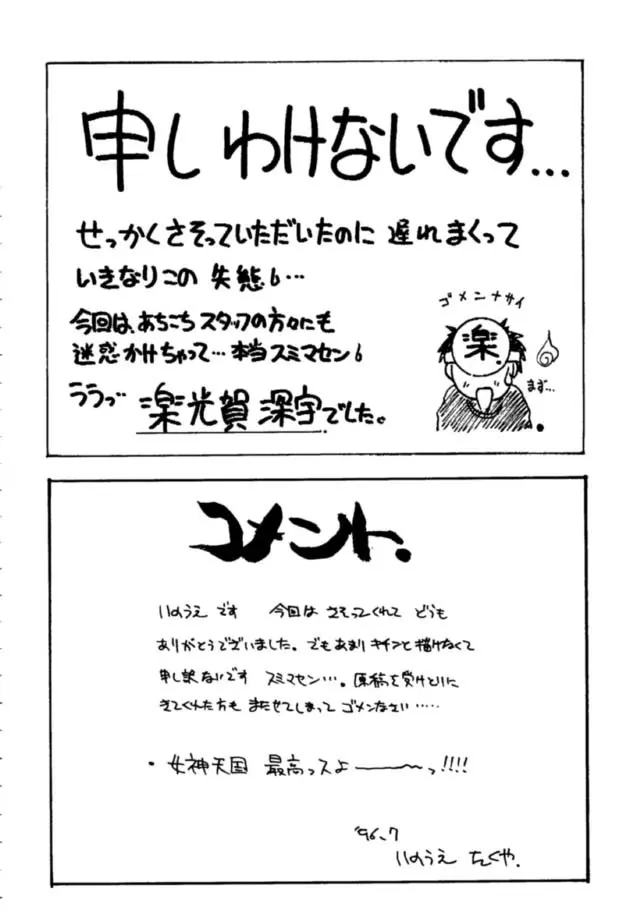 申しわけないです…
せっかくさそっていただいたのに 遅れまくって
いきなりこの 失態6…
今回は、あちこち スタッフの方々にも
迷惑かけちゃって… 本当スミマセン6
ゴメンナサイ
楽
まず…
ううっ 楽光賀 深宇でした。
コメント.
いのうえ です 今回は さそってくれて どうも
ありがとうございました。でもあまり キチンと描けなくて
申し訳ないです スミマセン…. 原稿を受けとりに
きてくれた方も またせてしまって ゴメンなさい……
・女神天国 最高っスよ———〜っ!!!!
'96.7
いのうえ たくや.